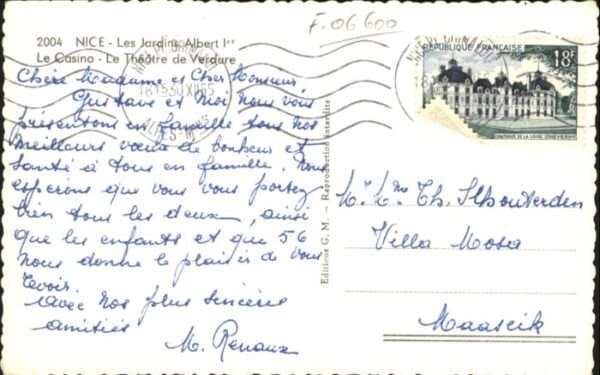 F. 06600
2004 NICE - Les Jardins Albert Ier
Le Casino - Le Théâtre de Verdure
REPUBLIQUE FRANÇAISE
18F
Chère Madame et Cher Monsieur,
Gustave et Moi nous vous
présentons en famille tous nos
meilleurs vœux de bonheur et
santé à tous en famille. Nous
espérons que vous vous portez
bien tous les deux, ainsi
que les enfants et que 56
nous donne le plaisir de vous
revoir.
Avec nos plus sincères
amitiés
M. Renaux
Editions G. M. - Reproduction interdite
Th.
Villa Mosa
Maaseik